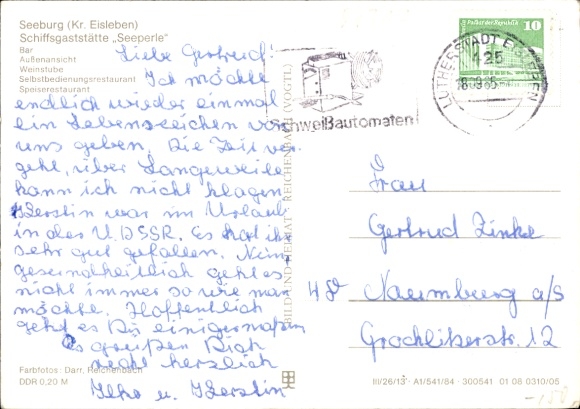 Seeburg (Kr. Eisleben)
Schiffsgaststätte „Seeperle"
Bar
Außenansicht
Weinstube
Selbstbedienungsrestaurant
Speiserestaurant
Liebe Gertrud!
Ich möchte
endlich wieder einmal
ein Lebenszeichen von
uns geben. Die Zeit ver-
geht, über Langeweile
kann ich nicht klagen.
Kerstin war im Urlaub
in der UDSSR. Es hat ihr
sehr gut gefallen. Mein
gesundheitlich geht es
nicht immer so wie man
möchte. Hoffentlich
geht es Dir einigermaßen
Es grüßen Dich
recht herzlich
u. Kerstin
Farbfotos: Darr, Reichenbach
DDR 0,20 M
BILD UND HEIMAT · REICHENBACH (VOGTL)
Schweißautomaten
LUTHERSTADT EISLEBEN
Palast der Republik
10
Frau
Gertrud Zinke
Naumburg a/S
Grochlitzerstr. 12
III/26/13 · A1/541/84 · 300541 01 08 0310/05